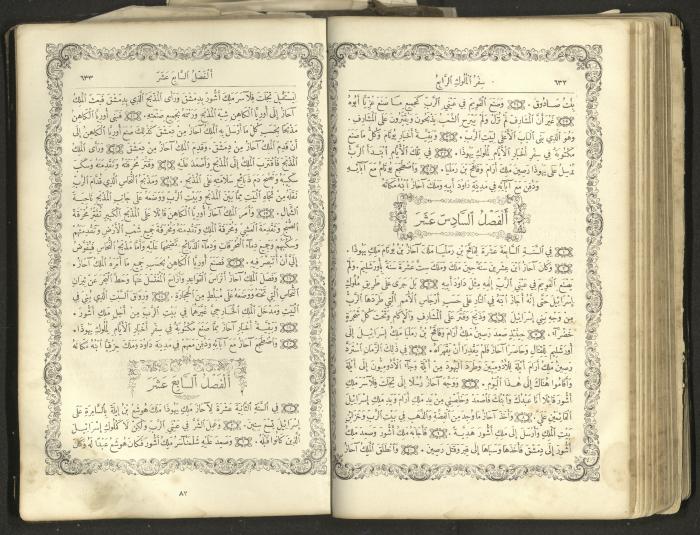 ٦٣٢
سفر الملوك الرابع
بنت صادوق. وصنع القويم في عيني الرب كجميع ما صنع عزيا أبوه
غير أن المشارف لم تزل ولم يبرح الشعب يذبحون ويقترون على المشارف.
وهو الذي بنى الباب الأعلى لبيت الرب. وبقية أخبار يوتام وكل ما صنع
مكتوبة في سفر أخبار الأيام لملوك يهوذا. في تلك الأيام ابتدأ الرب
يرسل على يهوذا رصين ملك أرام وفاقح بن رمليا. واضطجع يوتام مع آبائه
ودفن مع آبائه في مدينة داود أبيه وملك آحاز ابنه مكانه
الفصل السادس عشر
في السنة السابعة عشرة لفاقح بن رمليا ملك آحاز بن يوتام ملك يهوذا.
وكان آحاز ابن عشرين سنة حين ملك وملك ست عشرة سنة بأورشليم. ولم
يصنع القويم في عيني الرب إلهه مثل داود أبيه بل جرى على طريق ملوك
إسرائيل حتى إنه أجاز ابنه في النار على حسب أرجاس الأمم التي طردها الرب
من وجه بني إسرائيل وذبح وقتر على المشارف والآكام وتحت كل شجرة
خضراء. حينئذ صعد رصين ملك أرام وفاقح بن رمليا ملك إسرائيل إلى
أورشليم للقتال وحاصرا آحاز فلم يقدرا أن يقهراه. في ذلك الزمان استرد
رصين ملك أرام أيلة للأدوميين وطرد اليهود من أيلة وجاء الأدوميون إلى أيلة
وأقاموا هناك إلى هذا اليوم. ووجه آحاز رسلا إلى تجلت فلاسر ملك
أشور قائلا أنا عبدك وابنك فاصعد وخلصني من يد ملك أرام ويد ملك إسرائيل
القائمين علي. وأخذ آحاز ما وجد من الفضة والذهب في بيت الرب وخزائن
بيت الملك وأرسل إلى ملك أشور هدية. فأجابه ملك أشور وصعد ملك
أشور إلى دمشق فأخذها وسباها إلى قير وقتل رصين. وانطلق الملك آحاز
الفصل السابع عشر
٦٣٣
ليستقبل تجلت فلاسر ملك أشور بدمشق ورأى المذبح الذي بدمشق فبعث الملك
آحاز إلى أوريا الكاهن شبه المذبح ورسمه بجميع صنعته. فبنى أوريا الكاهن
مذبحا بحسب كل ما أرسل به الملك آحاز من دمشق كذلك صنع أوريا الكاهن إلى
أن قدم الملك آحاز من دمشق. وقدم الملك آحاز من دمشق ورأى الملك
المذبح فاقترب الملك إلى المذبح وأصعد عليه وقتر محرقته وتقدمته وسكب
سكيبه ونضح دم ذبائح سلامته على المذبح. ومذبح النحاس الذي قدام الرب
نقله من تجاه البيت ما بين المذبح وبيت الرب ووضعه على جانب المذبح ناحية
الشمال. وأمر الملك آحاز أوريا الكاهن قائلا على المذبح الكبير تقتر محرقة
الصبح وتقدمة العشي ومحرقة الملك وتقدمته ومحرقة جميع شعب الأرض وتقدمتهم
وسكبهم وجميع دماء المحرقات ودماء الذبائح تنضحها عليه وأما مذبح النحاس فيفوض
إلي أن أتبصر فيه. فصنع أوريا الكاهن بحسب جميع ما أمره الملك آحاز.
وفصل الملك آحاز أتراس القواعد وأزاح المغتسل عنها وحط البحر عن ثيران
النحاس التي تحته ووضعه على مبلط من الحجارة. ورواق السبت الذي بني في
البيت ومدخل الملك الخارجي غيرهما في بيت الرب من أجل ملك أشور.
وبقية أخبار آحاز مما صنع مكتوبة في سفر أخبار الأيام لملوك يهوذا.
واضطجع آحاز مع آبائه ودفن معهم في مدينة داود وملك حزقيا ابنه مكانه
الفصل السابع عشر
في السنة الثانية عشرة لآحاز ملك يهوذا ملك هوشع بن إيلة بالسامرة على
إسرائيل تسع سنين. وعمل الشر في عيني الرب ولكن لا كملوك إسرائيل
الذين كانوا قبله. وصعد عليه شلمناسر ملك أشور فكان هوشع عبدا له وكان
٨٢